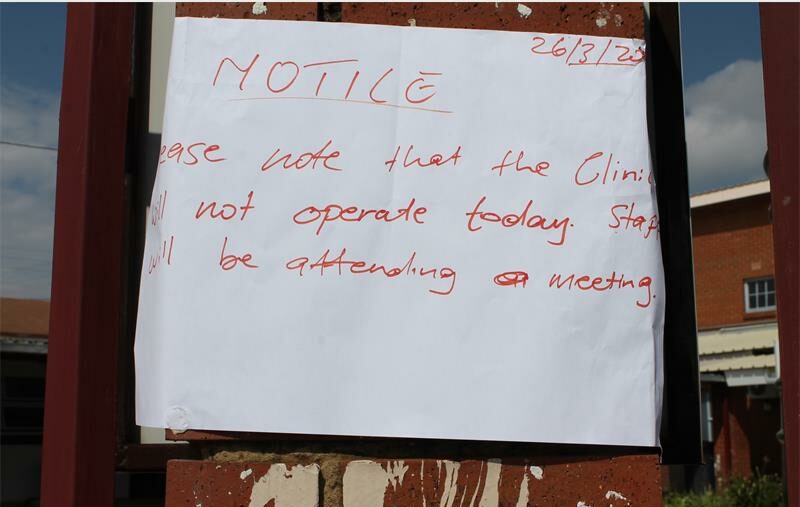 26/3/20
NOTICE
ease note that the Clinic
will not operate today. Staff
will be attending a meeting.